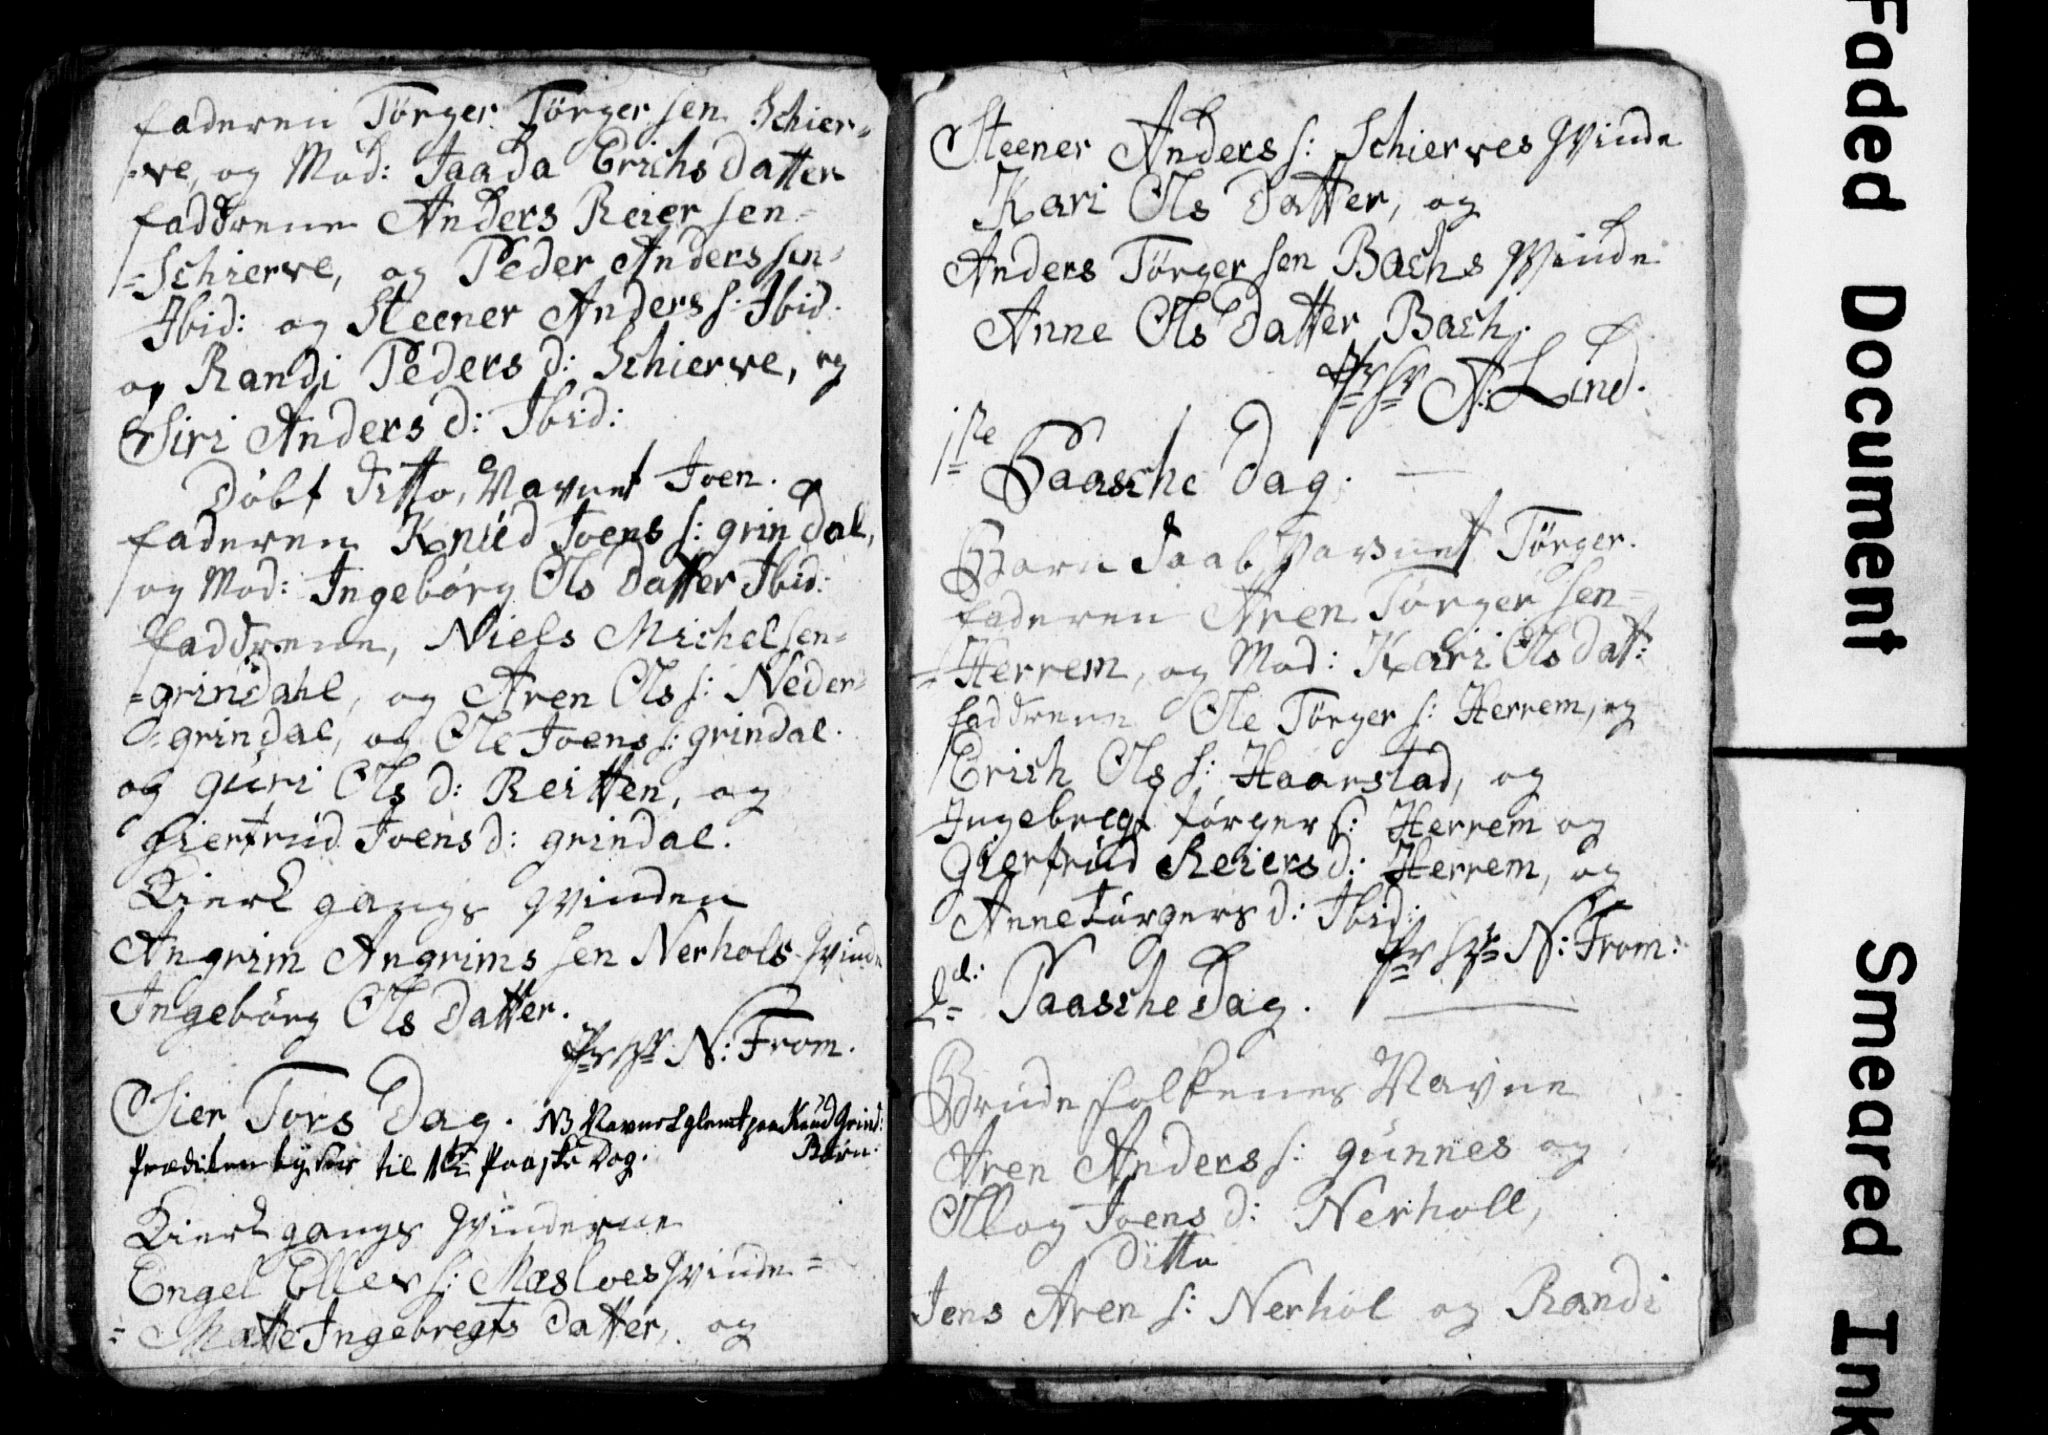 faderen Törger Törger sen Schier=
=ve, og Mod: Jaada Erichs datter
faddrene Anders Reier sen=
=Schierve, og Peder Anders sen=
Ibid: og Steener Anders s: Ibid.
og Randi Peders d: Schierve, og
Siri Anders d: Ibid:
Döbt ditto, Navnet Joen.
faderen Knüd Joens s: grindal,
og Mod: Ingebörg Ols datter Ibid:
faddrene, Niels Michelsen=
=grindahl, og Aren Ols s: Neder=
=grindal, og Ole Joens s: grindal.
og güri Ols d: Reitten, og
Giertrüd Joens d: grindal.
Kierk gangs qvinden
Angrim Angrims sen Nerhols qvinde
Ingebörg Ols datter.
N: From.
Sier Tors Dag. NB Navnet glemt paa Knud Grind:
Børn.
til 1te Paaske Dag.
Kierk gangs qvinderne
Engel Ellev s: Mæsloes qvinde=
=Matte Ingebregts datter, og
Steener Anders s: Schierves qvinde
Kari Ols datter, og
Anders Törger sen Bachs qvinde
Anne Ols datter Bach.
A: Lind.
1ste
Paasche dag.
Barn Daab, Navnet Törger.
faderen Aren Törger sen=
=Herrem, og Mod: Kari Ols datt:
faddrene Ole Törger s: Herrem, og
Erich Ols s: Haarstad, og
Ingebregt törger s: Herrem og
Giertrüd Reiers d: Herrem, og
Anne törgers d: Ibid:
N: From:
2d: Paasche Dag.
Brüde folkenes Navne
Aren Anders s: günnes og
Ollog Joens d: Nerholl,
ditto
Jens Aren s: Nerhol og Randi
Faded Document
Smeared Ink